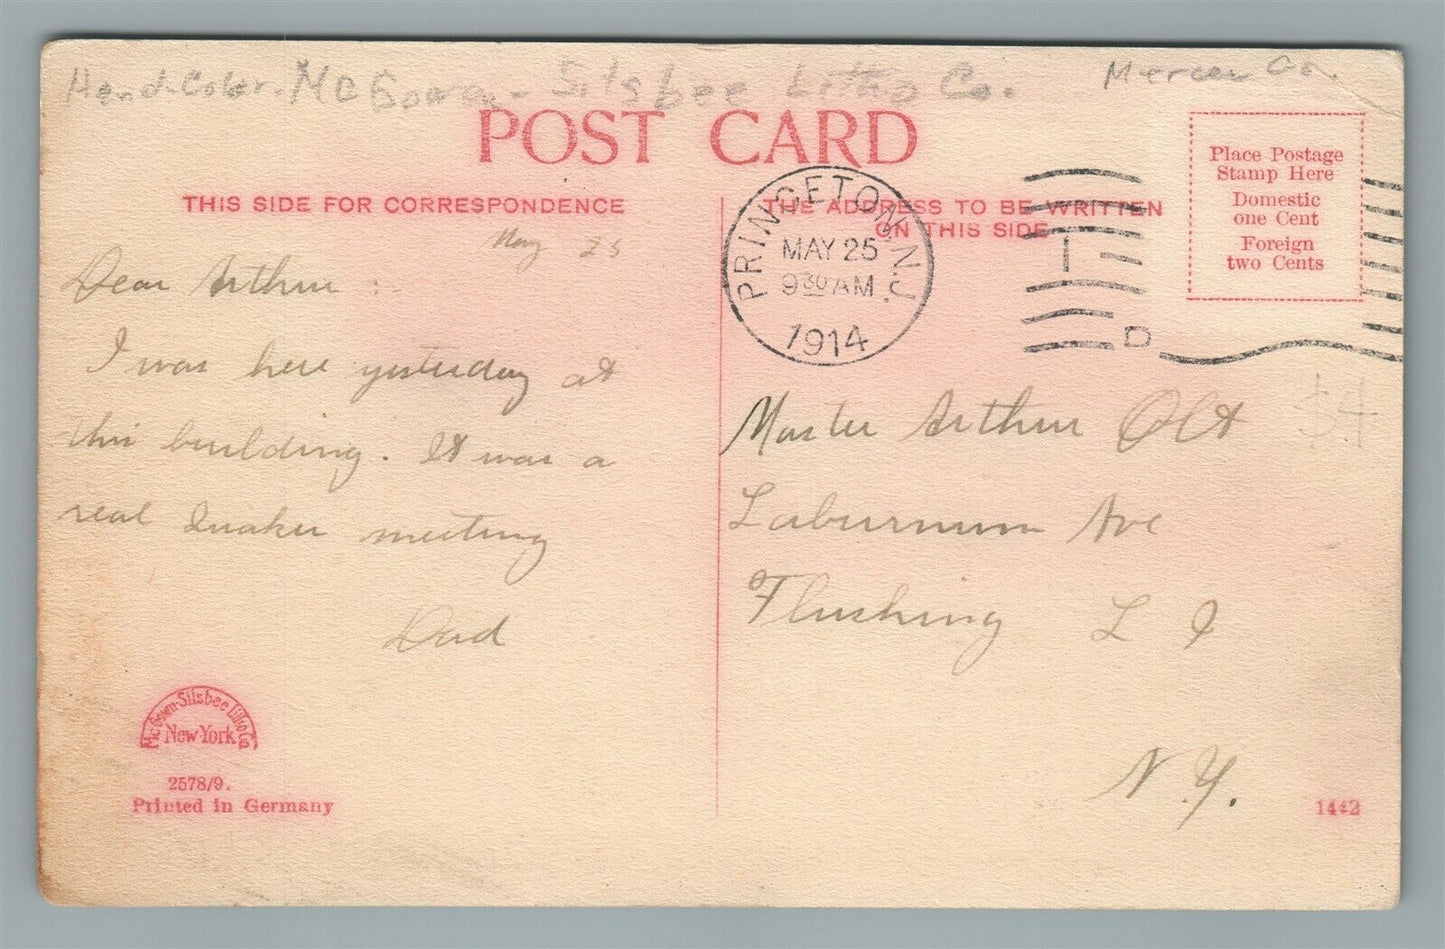 Hand-Color-McGowan-Silsbee Litho Co.
Mercer Co.
POST CARD
THIS SIDE FOR CORRESPONDENCE
THE ADDRESS TO BE WRITTEN
ON THIS SIDE
Place Postage
Stamp Here
Domestic
one Cent
Foreign
two Cents
PRINCETON, N.J.
MAY 25
9 30 AM
1914
D
May 25
Dear Arthur :-
I was here yesterday at
this building. It was a
real Quaker meeting
Dad
$4
Master Arthur Olt
Laburnum Ave
Flushing L I
N.Y.
McGowen-Silsbee Litho Co
New-York
2578/9.
Printed in Germany
1442